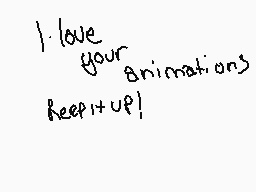 I love
your
animations
keep it up!